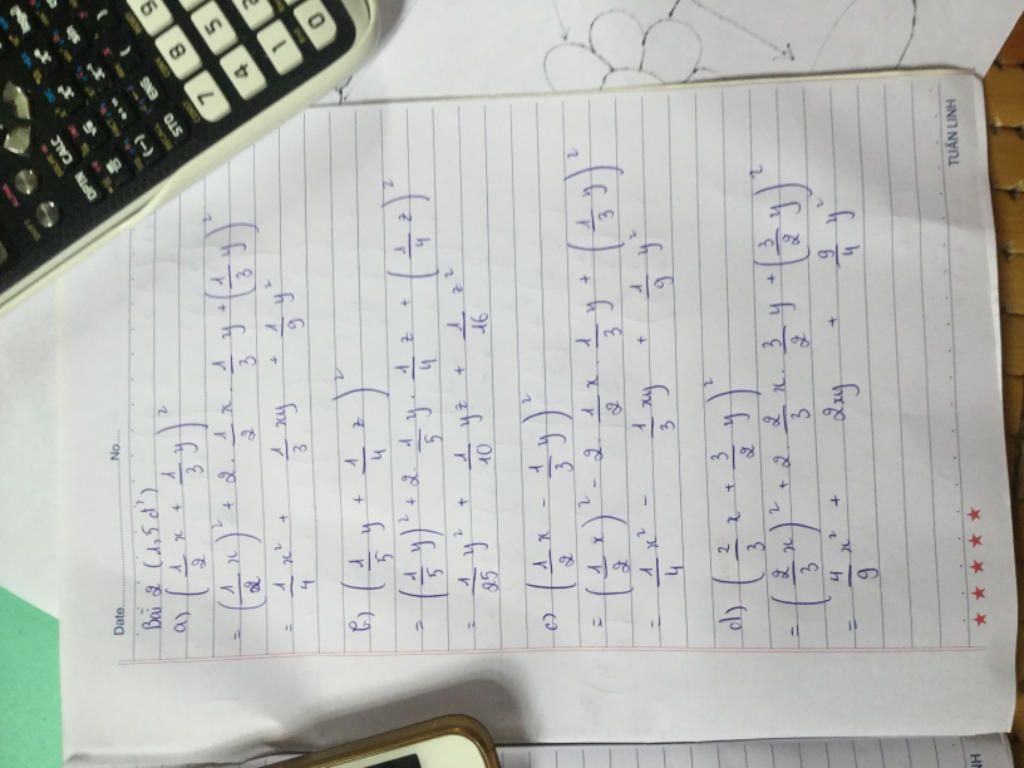 Date......
No......
Bài 2 (1,5 đ)
a) (1/2 x + 1/3 y)²
= (1/2 x)² + 2 . 1/2 x . 1/3 y + (1/3 y)²
= 1/4 x² + 1/3 xy + 1/9 y²
b) (1/5 y + 1/4 z)²
= (1/5 y)² + 2 . 1/5 y . 1/4 z + (1/4 z)²
= 1/25 y² + 1/10 yz + 1/16 z²
c) (1/2 x - 1/3 y)²
= (1/2 x)² - 2 . 1/2 x . 1/3 y + (1/3 y)²
= 1/4 x² - 1/3 xy + 1/9 y²
d) (2/3 x + 3/2 y)²
= (2/3 x)² + 2 . 2/3 x . 3/2 y + (3/2 y)²
= 4/9 x² + 2xy + 9/4 y²
TUẤN LINH
OPTN
CALC
STO
ENG
(-)
7
8
9
4
5
1
2
0
NH